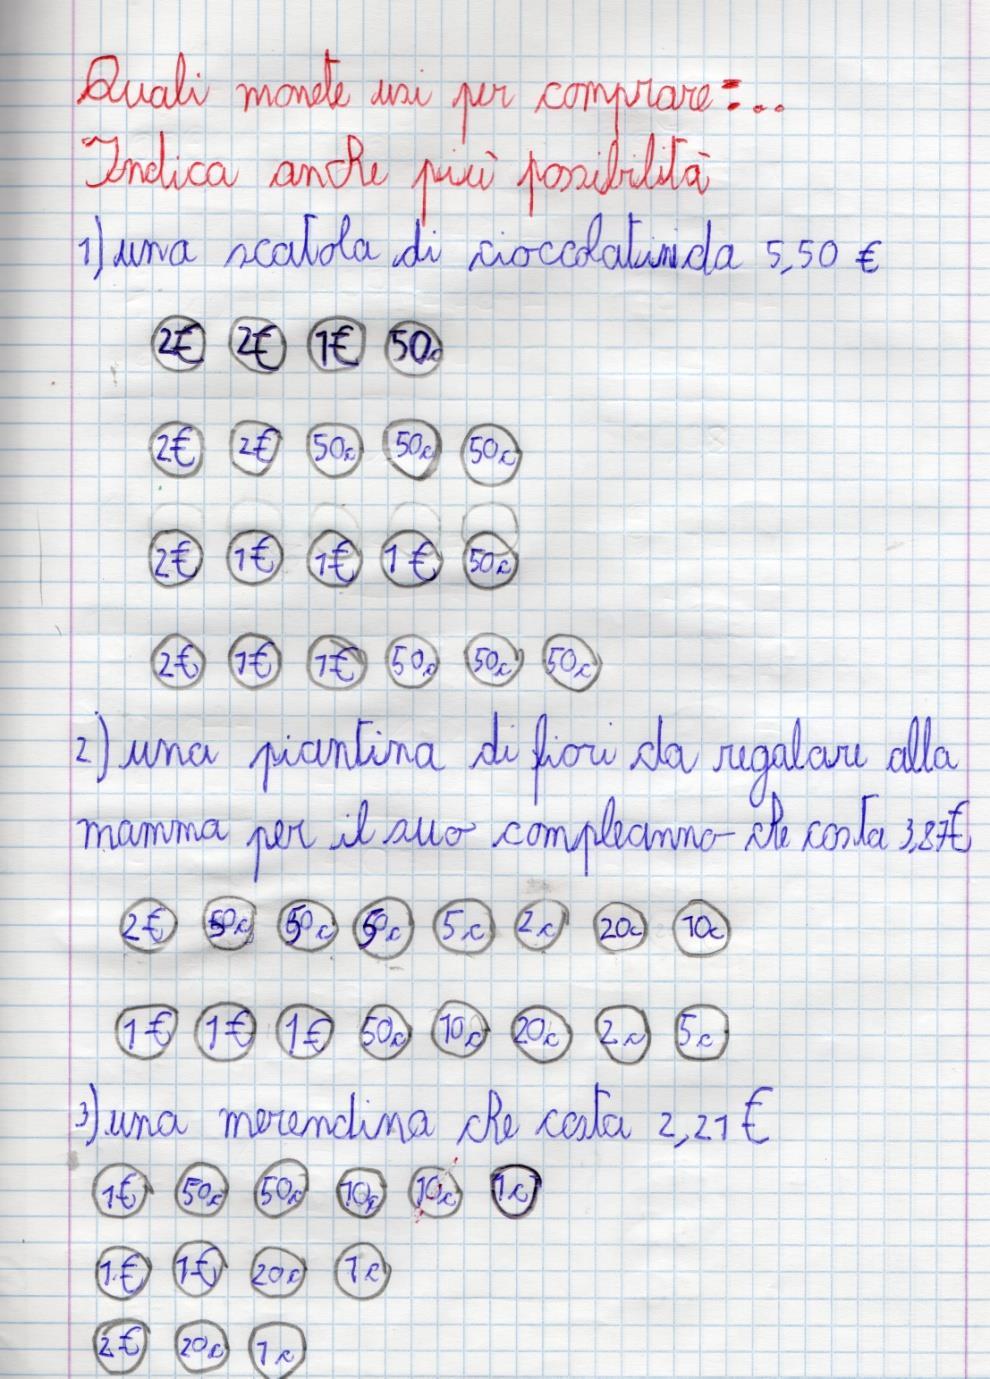 Quali monete usi per comprare:...
Indica anche più possibilità
1) una scatola di cioccolatini da 5,50 €
2€ 2€ 1€ 50c
2€ 2€ 50c 50c 50c
2€ 1€ 1€ 1€ 50c
2€ 1€ 1€ 50c 50c 50c
2) una piantina di fiori da regalare alla
mamma per il suo compleanno che costa 3,87€
2€ 50c 50c 50c 5c 2c 20c 10c
1€ 1€ 1€ 50c 10c 20c 2c 5c
3) una merendina che costa 2,21€
1€ 50c 50c 10c 10c 1c
1€ 1€ 20c 1c
2€ 20c 1c